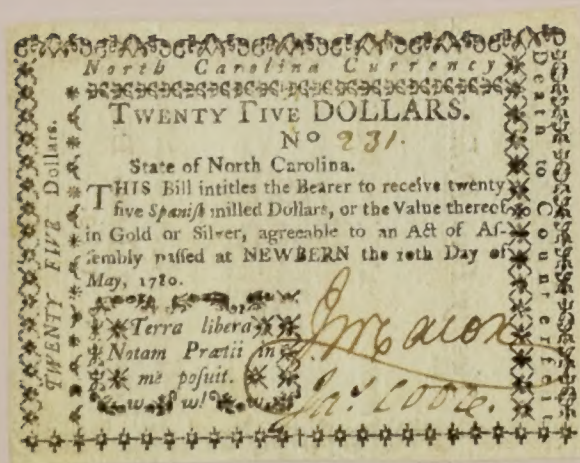 North Carolina Currency
TWENTY FIVE DOLLARS.
No 231.
State of North Carolina.
THIS Bill intitles the Bearer to receive twenty
five Spanish milled Dollars, or the Value thereof
in Gold or Silver, agreeable to an Act of As-
sembly passed at NEWBERN the 10th Day of
May, 1780.
Terra libera
Notam Prætii in
me posuit.
J Macon
Jas Coor.
TWENTY FIVE Dollars.
Death to Counterfeit